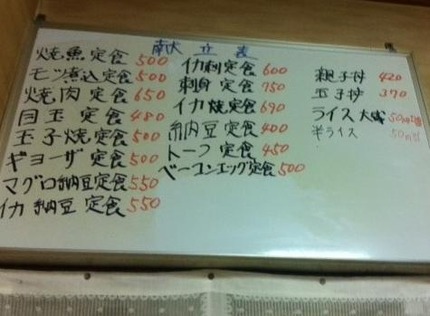 献立表
焼魚定食 500
モツ煮込定食 500
焼肉定食 650
目玉定食 480
玉子焼定食 500
ギョーザ定食 500
マグロ納豆定食 550
イカ納豆定食 550
イカ刺定食 600
刺身定食 750
イカ焼定食 690
納豆定食 400
トーフ定食 450
ベーコンエッグ定食 500
親子丼 420
玉子丼 370
ライス大盛 50円増
半ライス 50円引